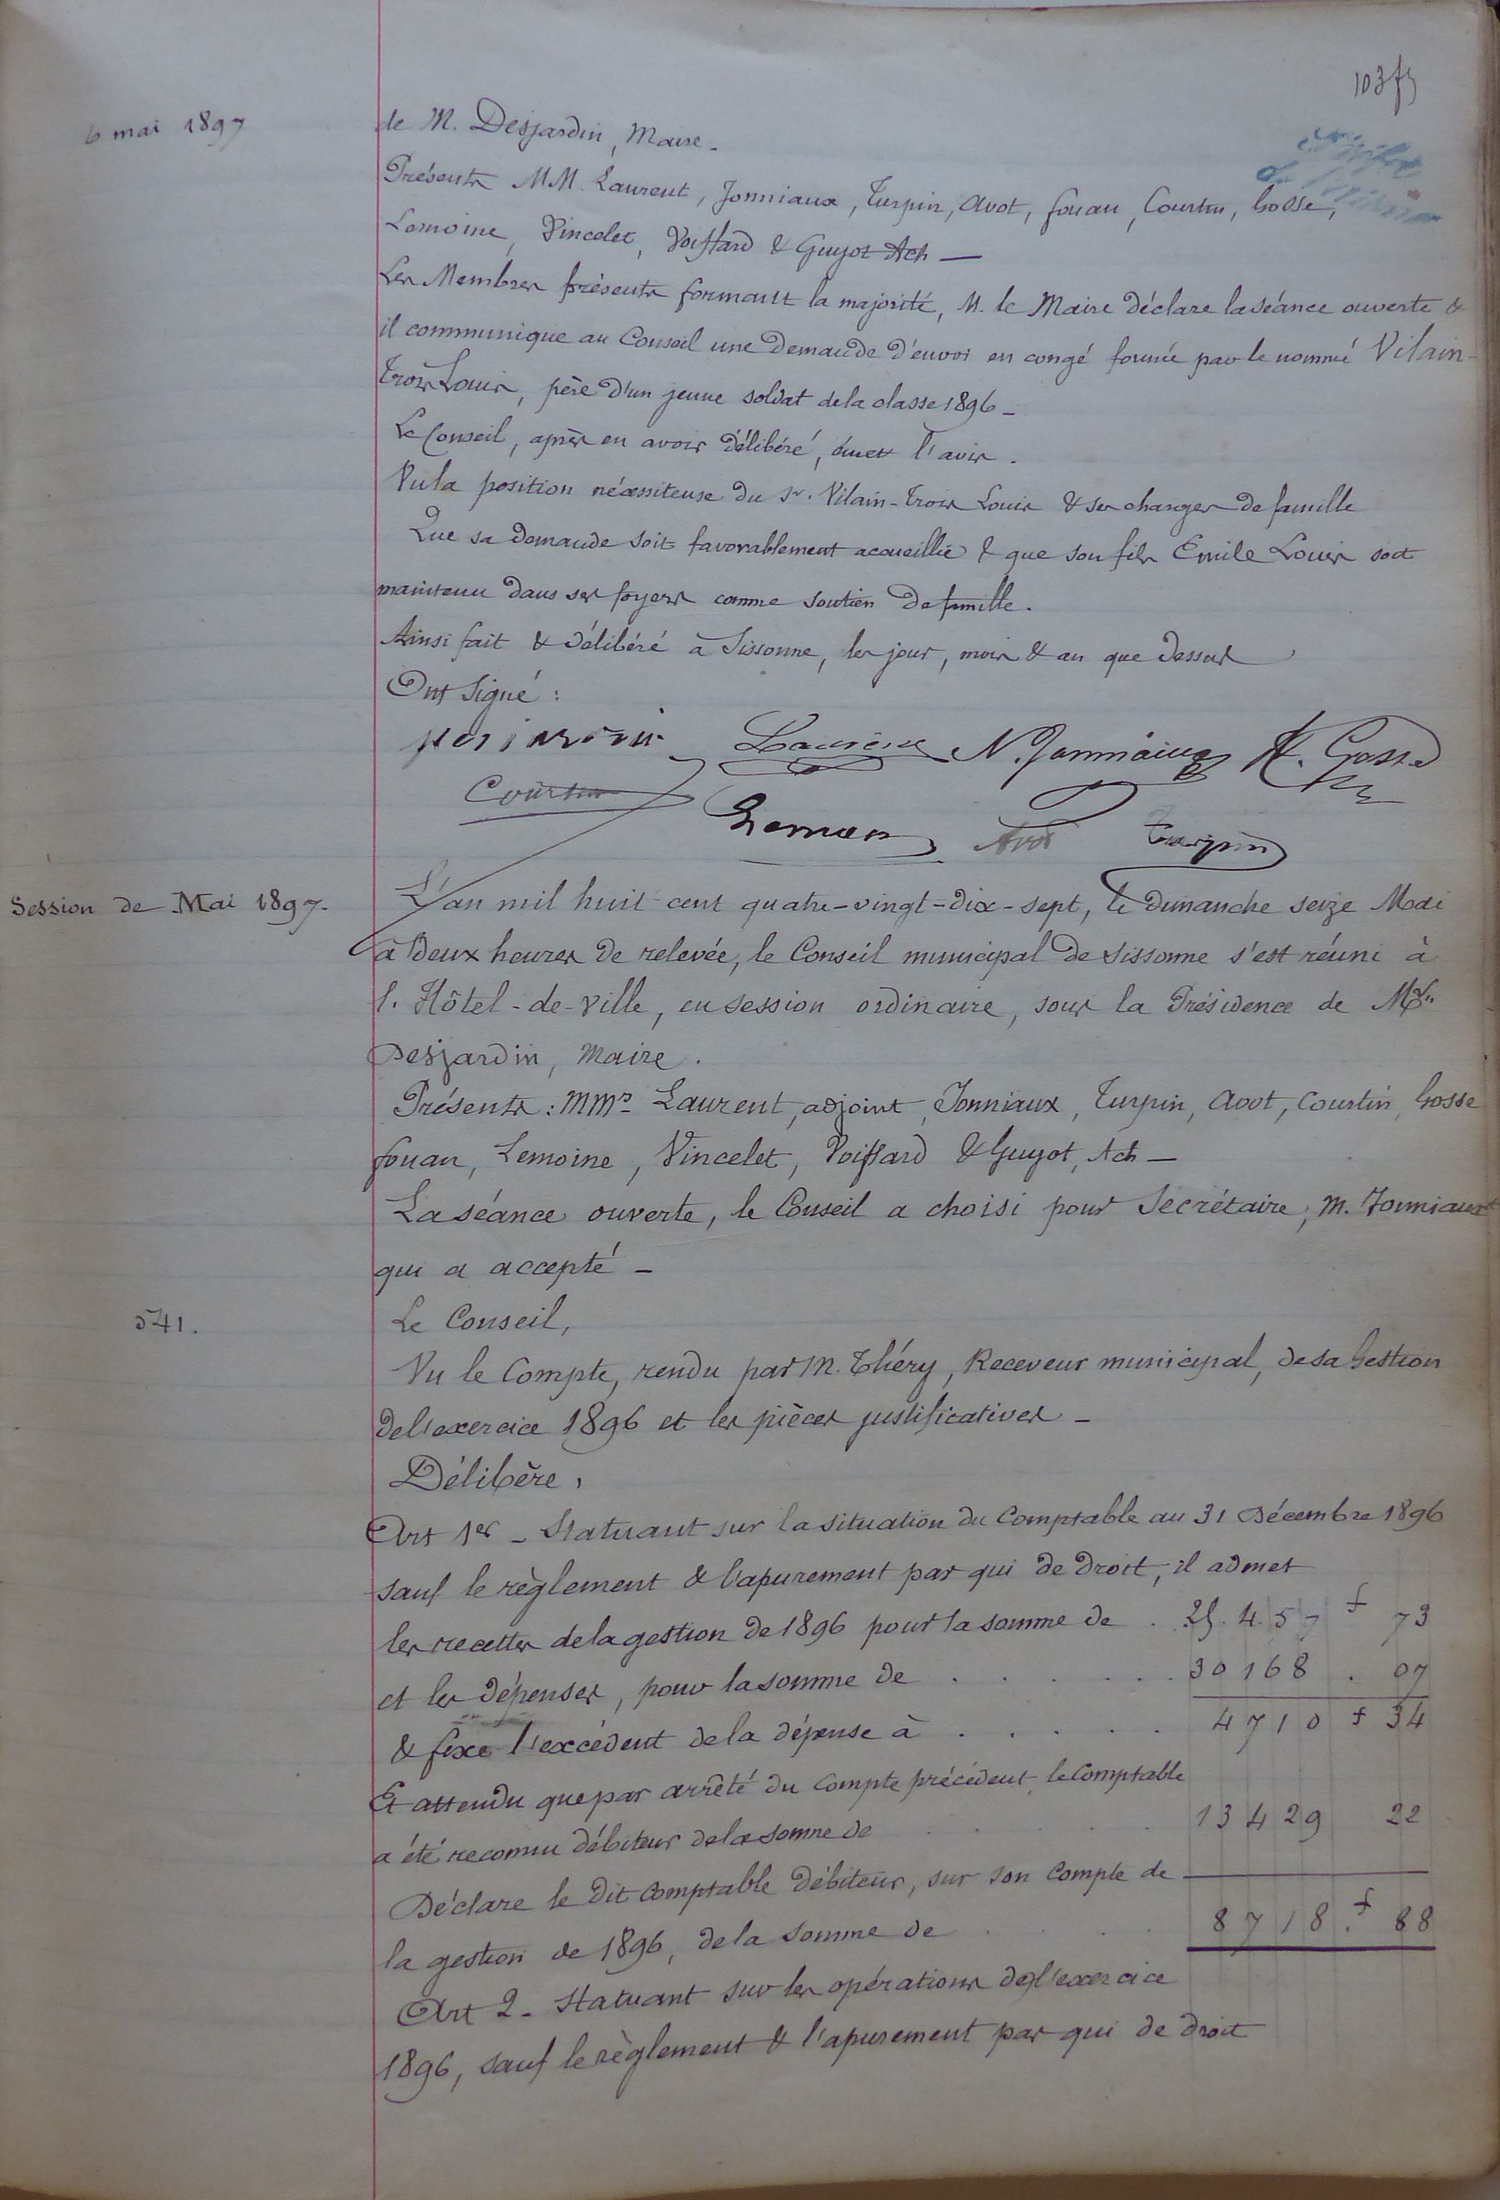 103
6 mai 1897
de M. Desjardin, Maire.
Présents MM. Laurent, Jonniaux, Turpin, Avot, fouan, Courtin, Gosse,
Lemoine, Vincelet, Voiffard & Guyot Ach —
Les Membres présents formant la majorité, M. le Maire déclare la séance ouverte &
il communique au Conseil une demande d'envoi en congé formée par le nommé Vilain-
Trois Louis, père d'un jeune soldat de la classe 1896 _
Le Conseil, après en avoir délibéré, émet l'avis.
Vu la position nécessiteuse du Sr. Vilain-Trois Louis & ses charges de famille
Que sa demande soit favorablement accueillie & que son fils Emile Louis soit
maintenu dans ses foyers comme soutien de famille.
Ainsi fait & délibéré à Sissonne, les jour, mois & an que dessus
Ont Signé :
Desjardin Laurent N. Jonniaux H. Gosse
Courtin Lemoine Avot Turpin
Session de Mai 1897.
L'an mil huit cent quatre-vingt-dix-sept, le dimanche seize Mai
à deux heures de relevée, le Conseil municipal de Sissonne s'est réuni à
l'Hôtel-de-ville, en session ordinaire, sous la Présidence de Mr
Desjardin, Maire.
Présents : MMrs Laurent, adjoint, Jonniaux, Turpin, Avot, Courtin, Gosse
fouan, Lemoine, Vincelet, Voiffard & Guyot, Ach —
La séance ouverte, le Conseil a choisi pour Secrétaire, M. Jonniaux
qui a accepté _
541.
Le Conseil,
Vu le Compte, rendu par M. Théry, Receveur municipal, de sa Gestion
de l'exercice 1896 et les pièces justificatives _
Délibère,
Art 1er _ Statuant sur la situation du Comptable au 31 Décembre 1896
sauf le règlement & l'apurement par qui de droit, il admet
les recettes de la gestion de 1896 pour la somme de . 25.457 f 73
et les dépenses, pour la somme de . . . . . 30 168 . 07
& fixe l'excédent de la dépense à . . . . . 4710 f 34
Et attendu que par arrêté du Compte précédent le Comptable
a été reconnu débiteur de la somme de . . . . 13 429 22
Déclare le dit Comptable débiteur, sur son Compte de
la gestion de 1896, de la somme de . . . 8718. f 88
Art 2 _ Statuant sur les opérations de l'exercice
1896, sauf le règlement & l'apurement par qui de droit